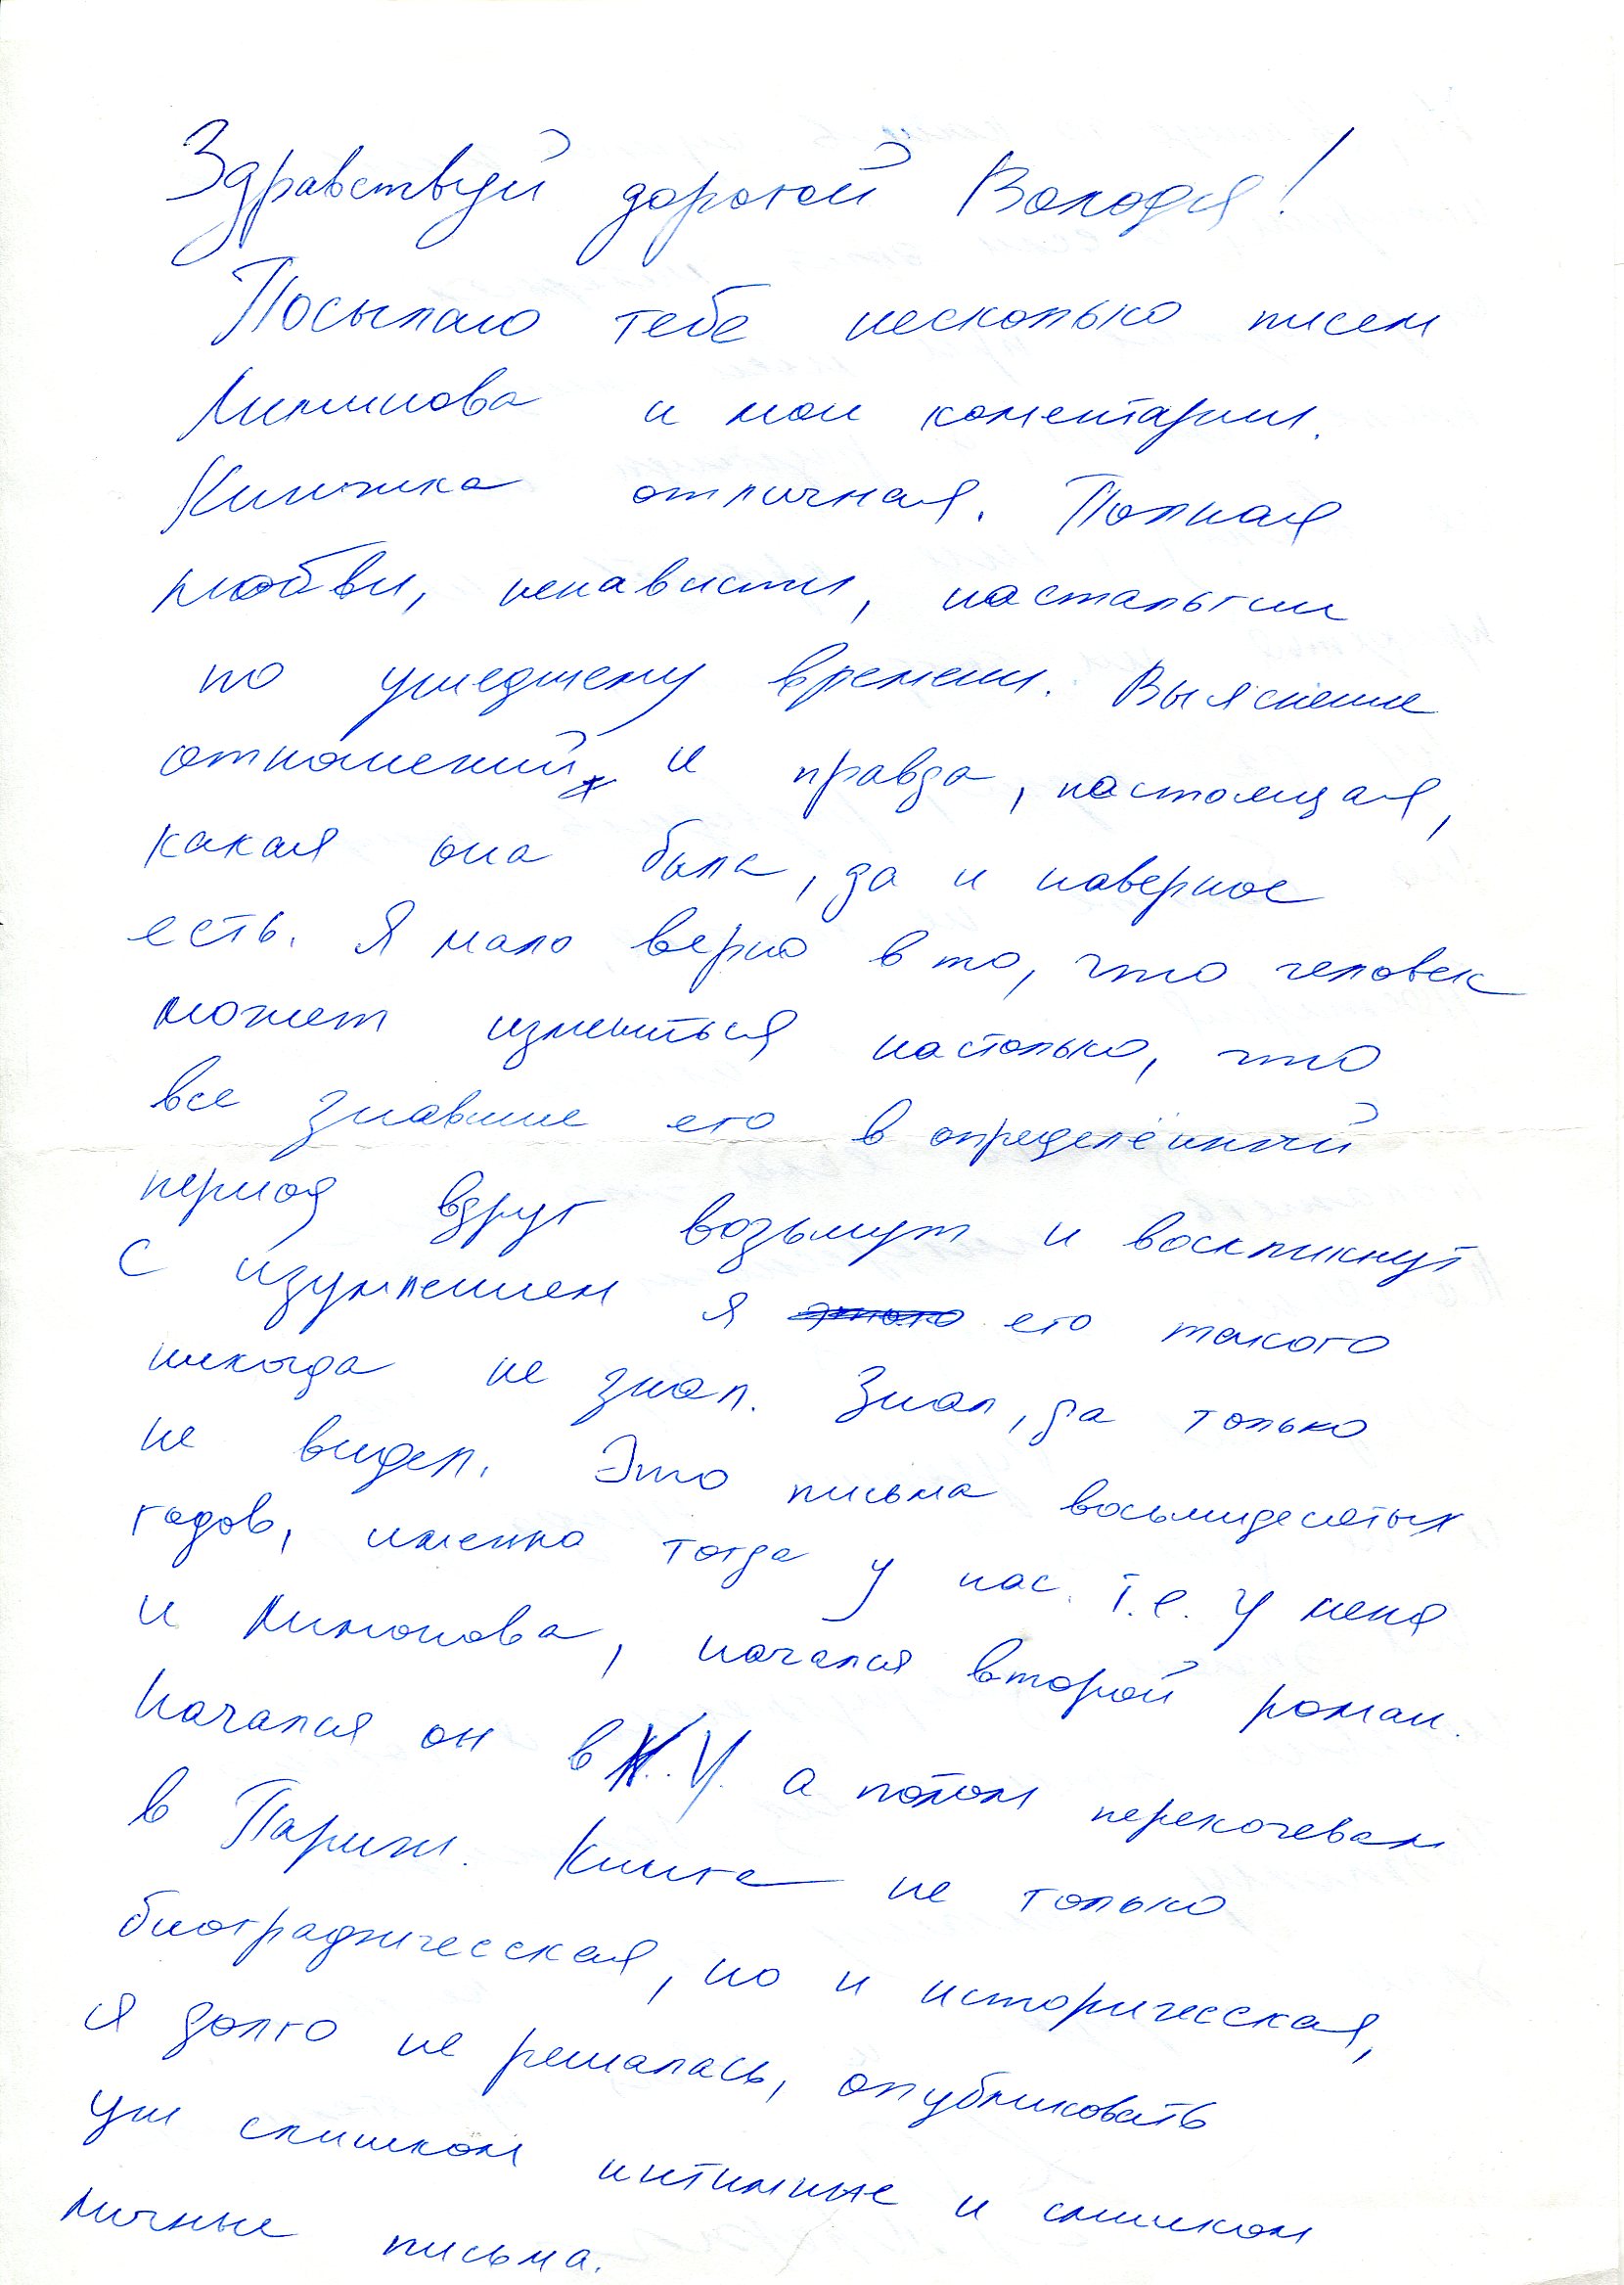 Здравствуй дорогой Володя!
Посылаю тебе несколько писем
Лимонова и мои коментарии.
Книжка отличная. Полная
любви, ненависти, настальгии
по ушедшему времени. Выяснение
отношений и правда, настоящая,
какая она была, да и наверное
есть. Я мало верю в то, что человек
может измениться настолько, что
все знавшие его в определённый
период вдруг возьмут и воскликнут
с изумлением я его такого
никогда не знал. Знал, да только
не видел. Это письма восьмидесятых
годов, именно тогда у нас. т.е. у меня
и Лимонова, начался второй роман.
Начался он в Н.Й. а потом перекочевал
в Париж. Книга не только
биографическая, но и историческая,
я долго не решалась, опубликовать
уж слишком интимные и слишком
личные письма.